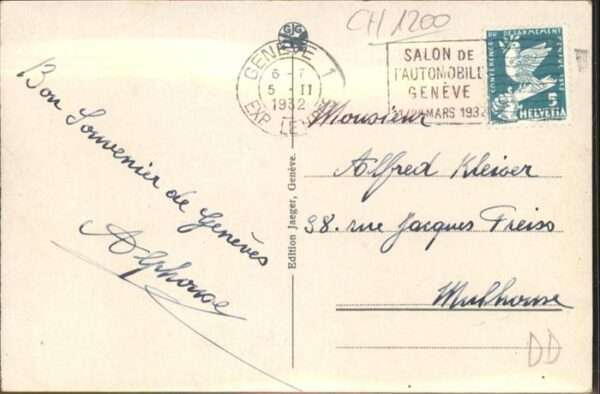 CH 1200
GENÈVE 1
6-7
5 - II
1932
EXP. LE
SALON DE
L'AUTOMOBILE
GENÈVE
MARS 1932
CONFÉRENCE DU DÉSARMEMENT
5
HELVETIA
Bon Souvenier de Genèves
Alphonse
Edition Jaeger, Genève.
Monsieur
Alfred Kleiber
38. rue Jacques Preiss
Mulhouse
DD